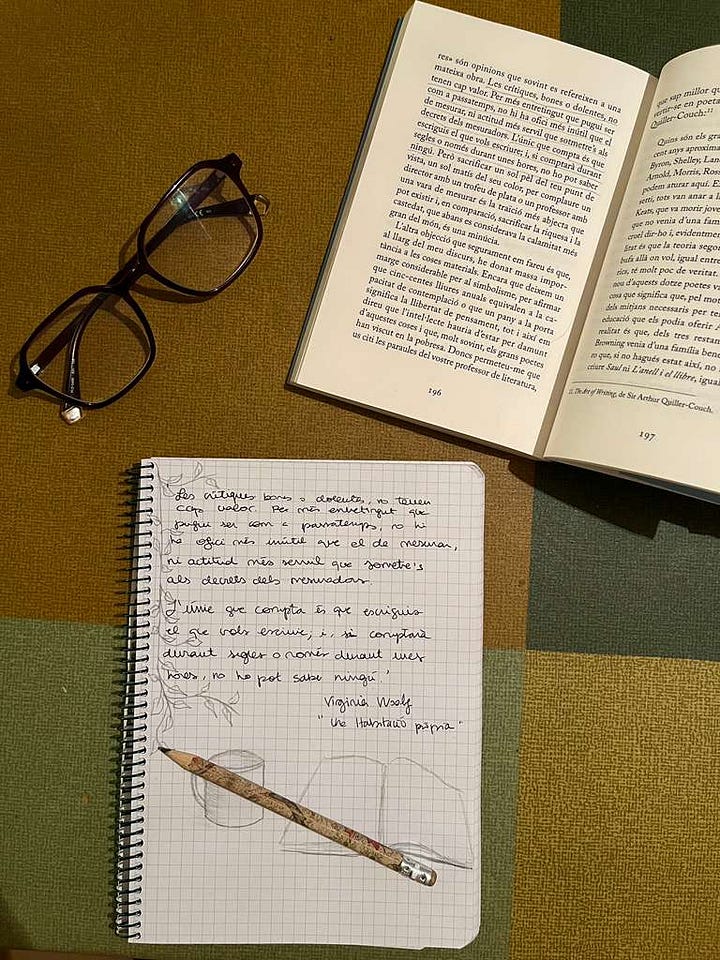 res» són opinions que sovint es refereixen a una
mateixa obra. Les crítiques, bones o dolentes, no
tenen cap valor. Per més entretingut que pugui ser
com a passatemps, no hi ha ofici més inútil que el
de mesurar, ni actitud més servil que sotmetre's als
decrets dels mesuradors. L'únic que compta és que
escriguis el que vols escriure; i, si comptarà durant
segles o només durant unes hores, no ho pot saber
ningú. Però sacrificar un sol pèl del teu punt de
vista, un sol matís del seu color, per complaure un
director amb un trofeu de plata o un professor amb
una vara de mesurar és la traïció més abjecta que
pot existir i, en comparació, sacrificar la riquesa i la
castedat, que abans es considerava la calamitat més
gran del món, és una minúcia.
L'altra objecció que segurament em fareu és que,
al llarg del meu discurs, he donat massa impor-
tància a les coses materials. Encara que deixem un
marge considerable per al simbolisme, per afirmar
que cinc-centes lliures anuals equivalen a la ca-
pacitat de contemplació o que un pany a la porta
significa la llibertat de pensament, tot i així em
direu que l'intel·lecte hauria d'estar per damunt
d'aquestes coses i que, molt sovint, els grans poetes
han viscut en la pobresa. Doncs permeteu-me que
us citi les paraules del vostre professor de literatura,
196
que sap millor
vertir-se en
Quiller-Couch:¹¹
Quins són els
cent anys
Byron, Shelley,
Arnold, Morris,
podem aturar aquí.
setti, tots van anar a
Keats, que va morir
que no venia d'una
cruel dir-ho i,
litat és que la teoria
bufa allà on vol, igual
rics, té molt poc de veritat.
nou d'aquests dotze poetes
cosa que significa que, pel
dels mitjans necessaris per
educació que els podia oferir
realitat és que, dels tres
Browning venia d'una família
ro que, si no hagués estat així, no
criure Saul ni L'anell i el llibre, igual
11. The Art of Writing, de Sir Arthur Quiller-Couch.
197
'Les crítiques bones o dolentes, no tenen
cap valor. Per més entretingut que
pugui ser com a passatemps, no hi
ha ofici més inútil que el de mesurar,
ni actitud més servil que sometre's
als decrets dels mesuradors.
L'únic que compta és que escriguis
el que vols escriure; i, si comptarà
durant segles o només durant unes
hores, no ho pot saber ningú.'
Virginia Woolf
"Una Habitació pròpia"